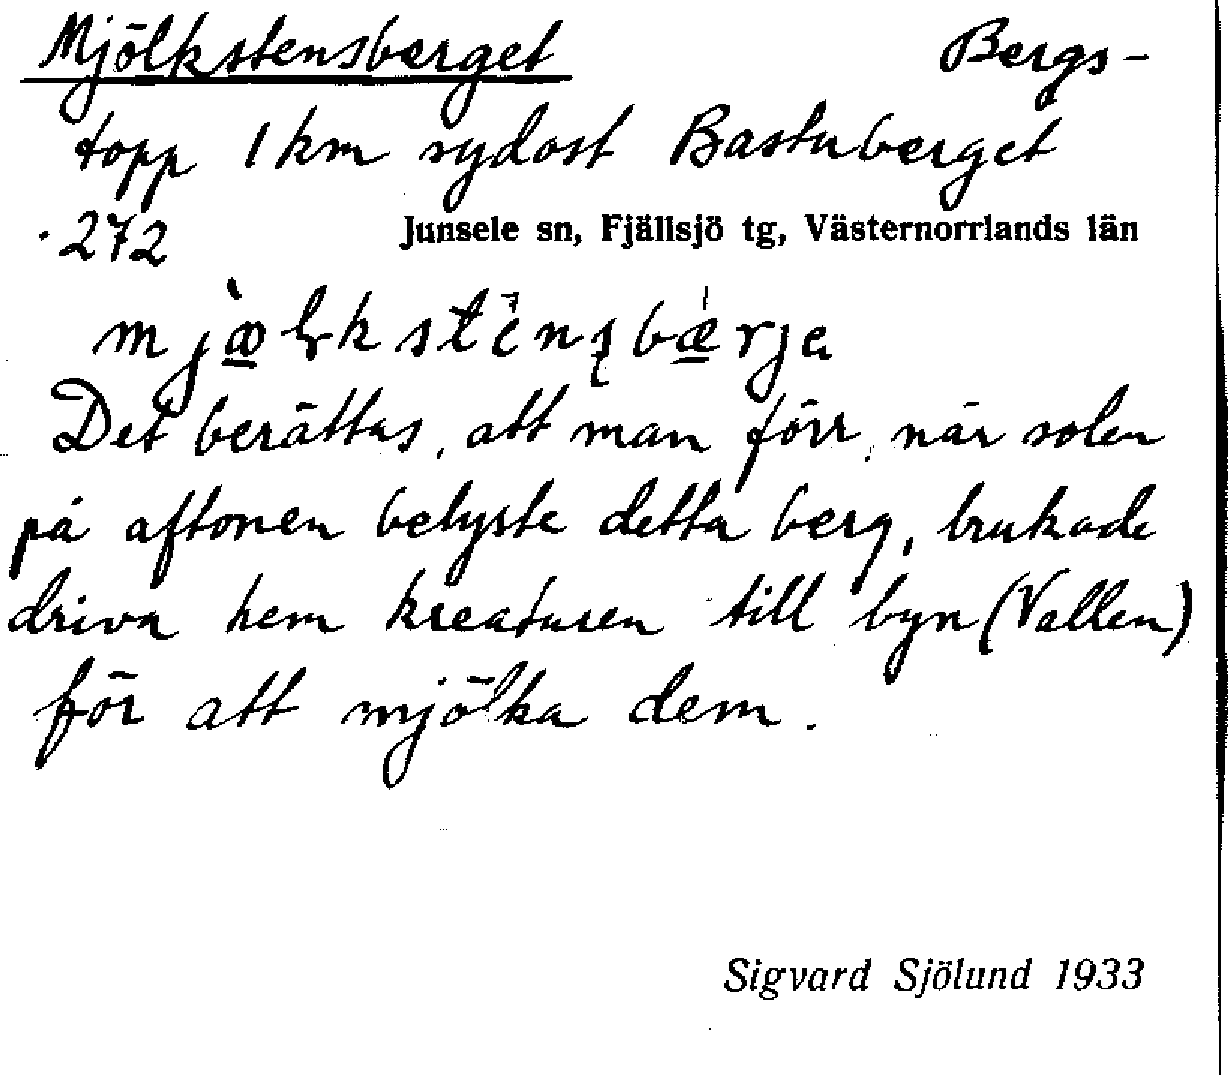 Mjölkstensberget Bergs-
topp 1 km sydost Bastuberget
.272 Junsele sn, Fjällsjö tg, Västernorrlands län
Det berättas, att man förr, när solen
på aftonen belyste detta berg, brukade
driva hem kreaturen till byn (Vallen)
för att mjölka dem.
Sigvard Sjölund 1933